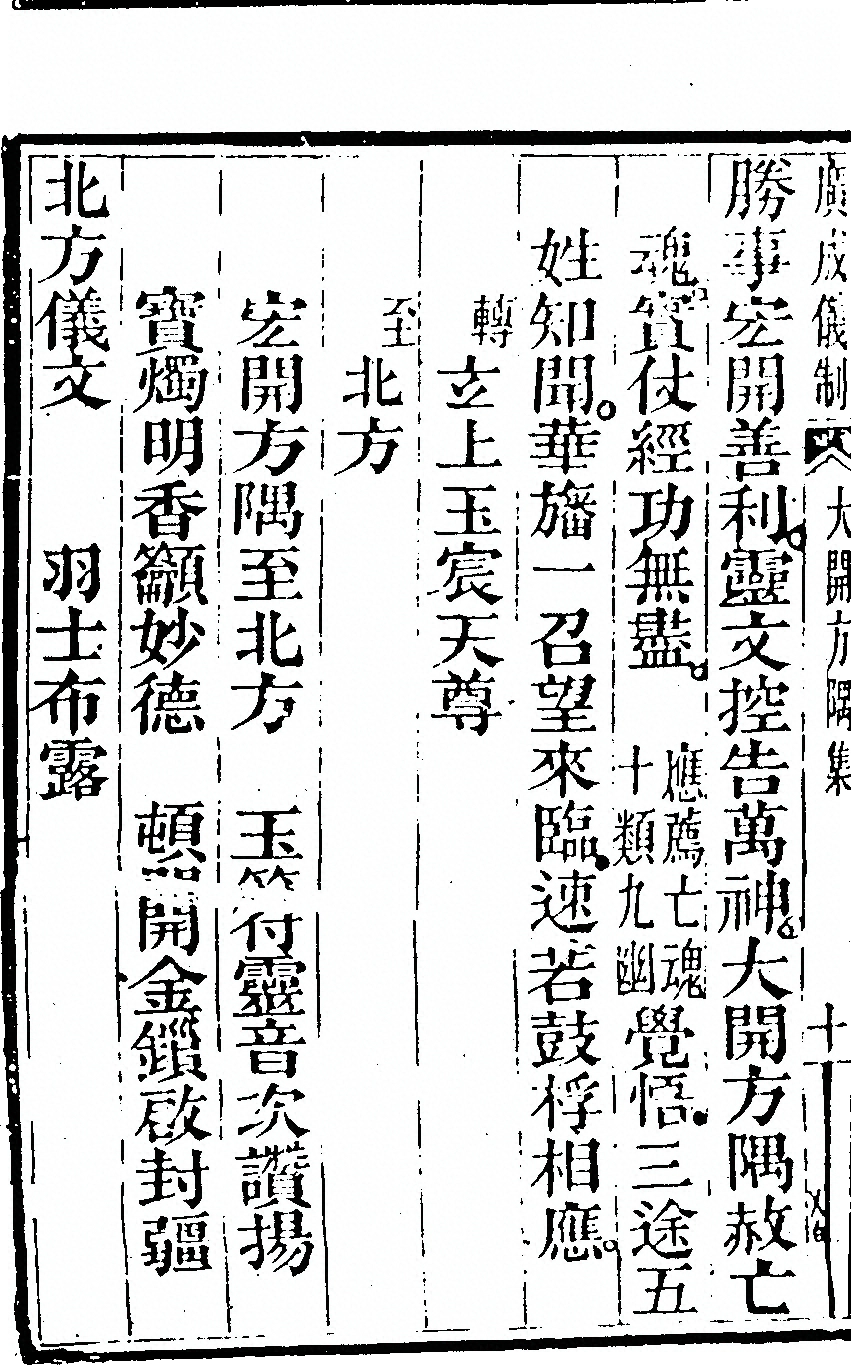 廣成儀制 大開方隅集 十
勝事宏開善利靈文控告萬神大開方隅赦亡
魂實仗經功無盡 應薦亡魂 十類九幽 覺悟三途五
姓知聞華旛一召望來臨速若鼓桴相應
轉 立上玉宸天尊
至 北方
宏開方隅至北方 玉符靈音次讚揚
寶燭明香籲妙德 頓開金鎖啟封疆
北方儀文 羽士布露